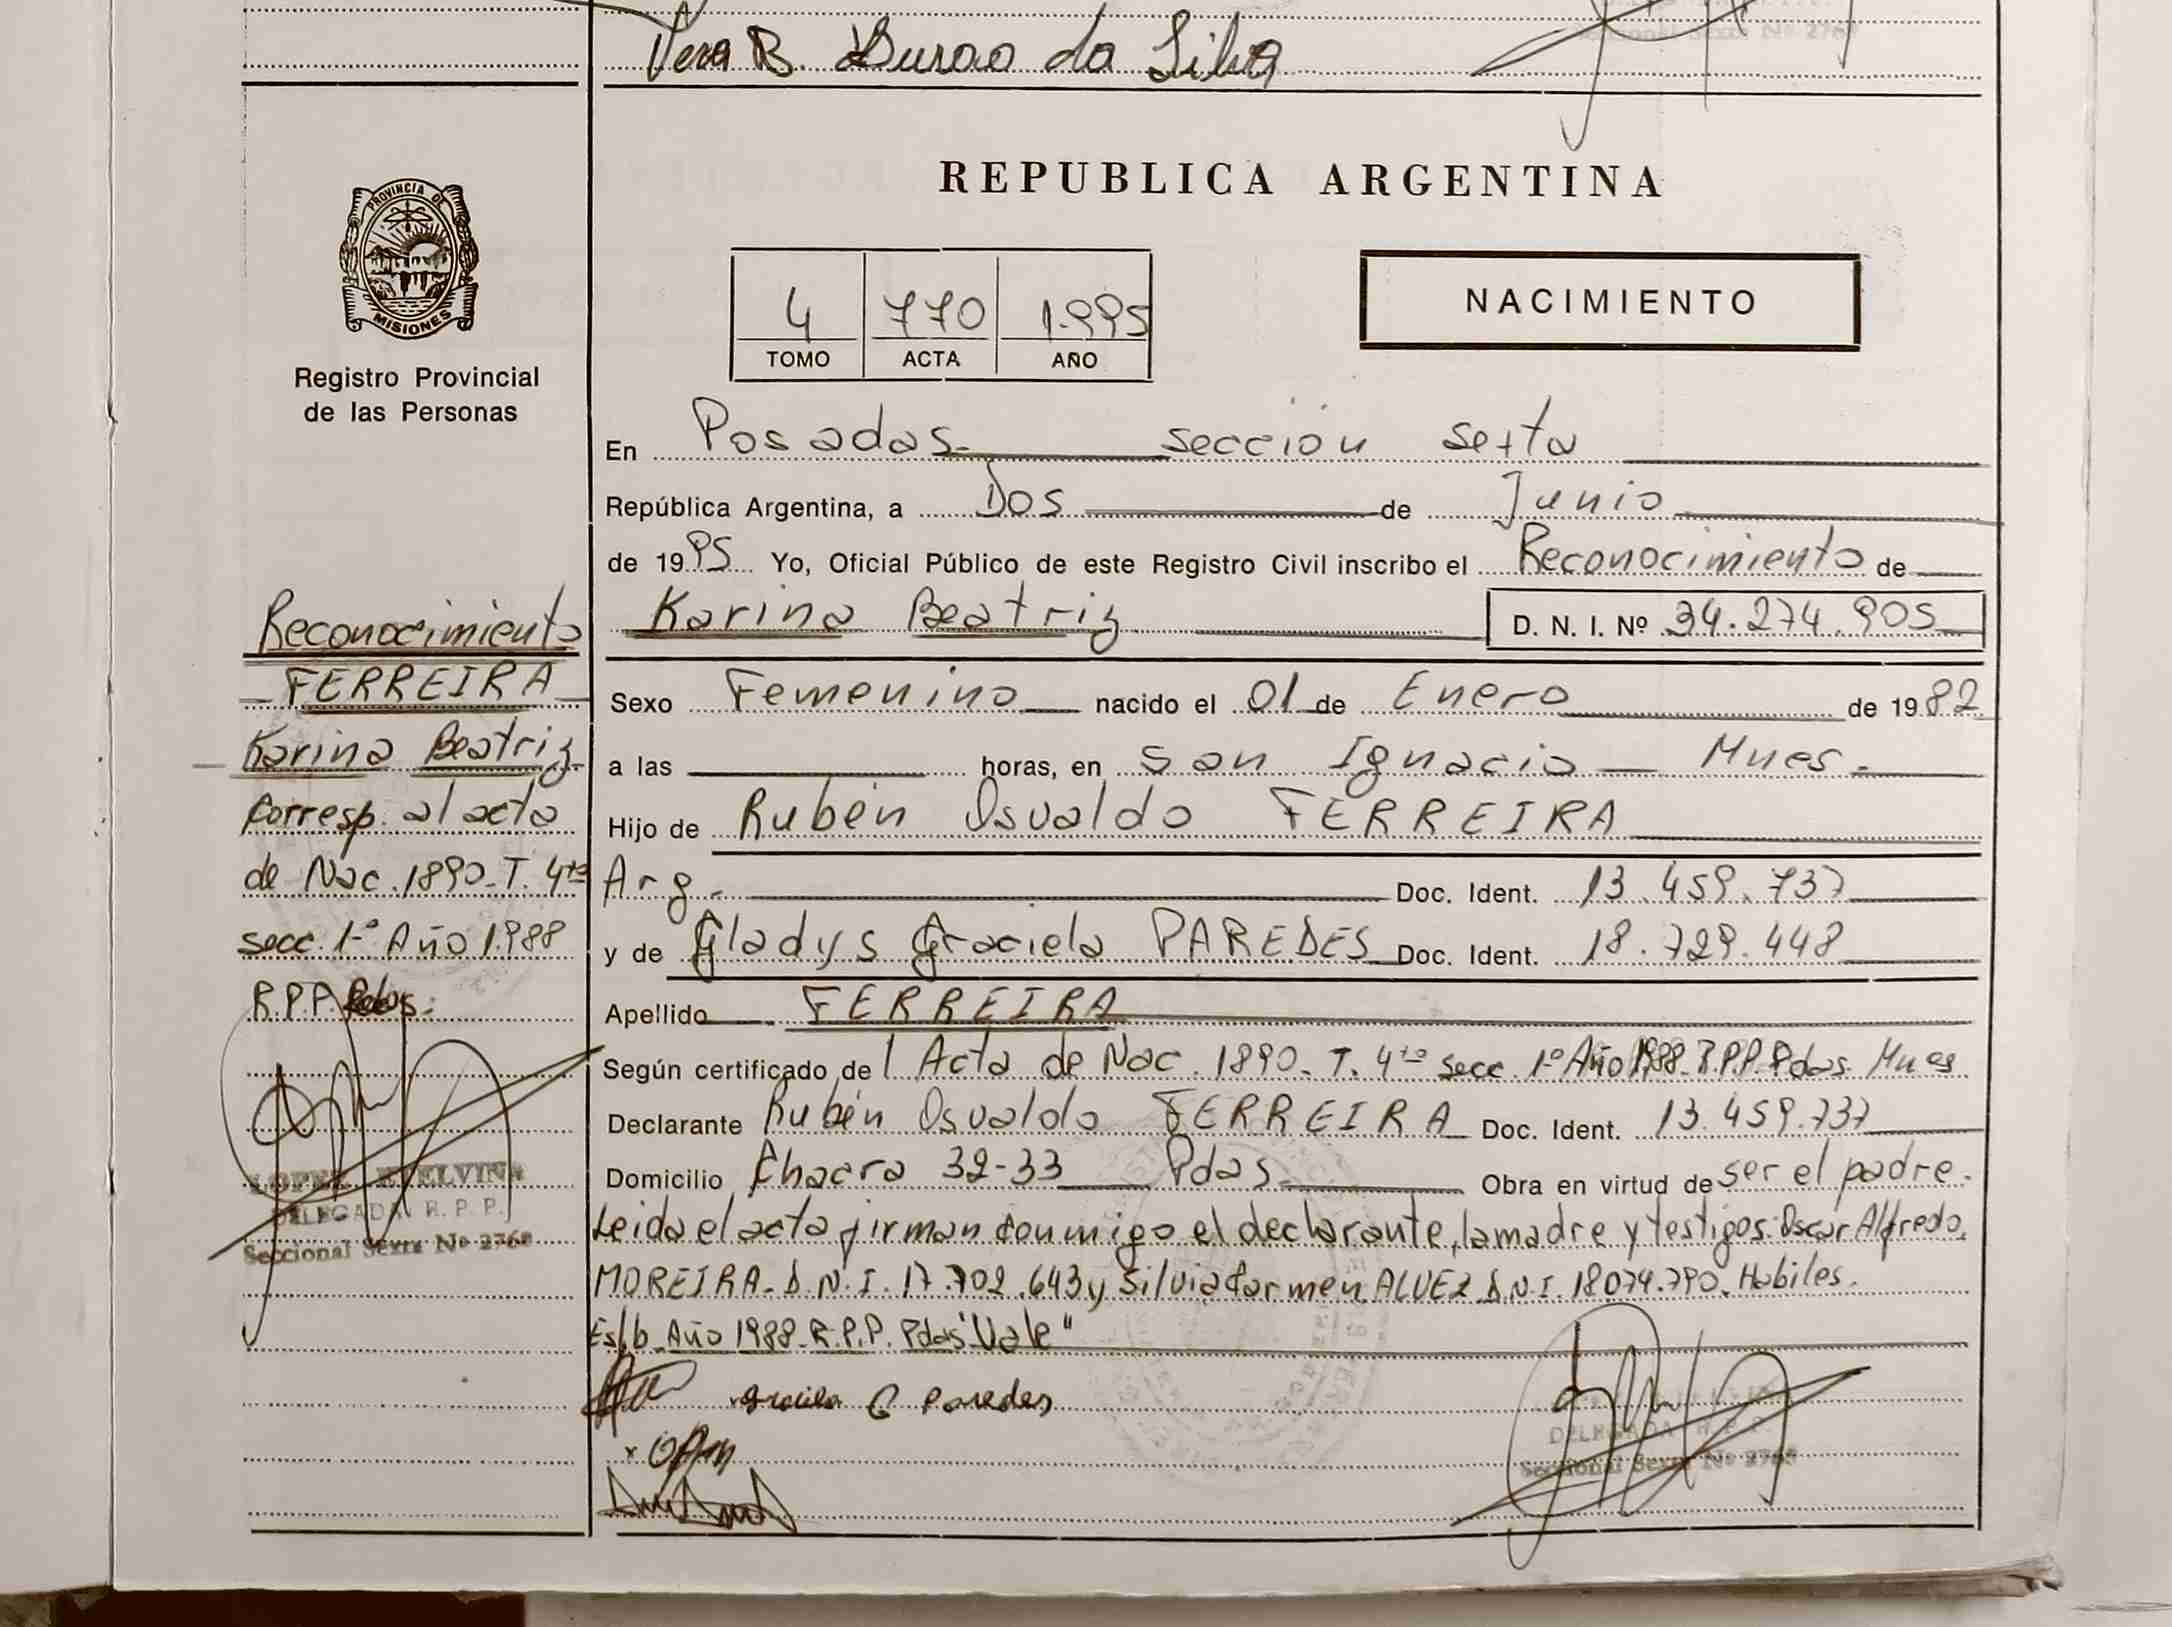 Vera B. Durao da Silva
Seccional Sexta Nº 2768
PROVINCIA DE
MISIONES
Registro Provincial
de las Personas
Reconocimiento
FERREIRA
Karina Beatriz
corresp. al acta
de Nac. 1890-T. 4to
secc. 1-ª Año 1.988
R.P.P. Pdas.
LOPEZ ETELVINA
DELEGADA R. P. P.
Seccional Sexta Nº 2768
REPUBLICA ARGENTINA
4 770 1.995
TOMO ACTA AÑO
NACIMIENTO
En Posadas sección sexta
República Argentina, a Dos de Junio
de 1995 Yo, Oficial Público de este Registro Civil inscribo el Reconocimiento de
Karina Beatriz D. N. I. Nº 34.274.905
Sexo Femenino nacido el 01 de Enero de 1982
a las horas, en San Ignacio - Mnes.
Hijo de Rubén Osvaldo FERREIRA
Arg. Doc. Ident. 13.459.737
y de Gladys Graciela PAREDES Doc. Ident. 18.729.448
Apellido FERREIRA
Según certificado de l Acta de Nac. 1890- T. 4to secc. 1º Año 1988-R.P.P. Pdas. Mnes
Declarante Rubén Osvaldo FERREIRA Doc. Ident. 13.459.737
Domicilio Chacra 32-33 Pdas. Obra en virtud de ser el padre.
Leida el acta firman conmigo el declarante, la madre y testigos: Oscar Alfredo
MOREIRA- D.N.I. 17.702.643 y Silvia Carmen ALVEZ D.N.I. 18074.790. Habiles.
Es/b. Año 1988-R.P.P. Pdas "Vale"
Graciela G Paredes
DELEGADA R. P. P.
Seccional Sexta Nº 2768